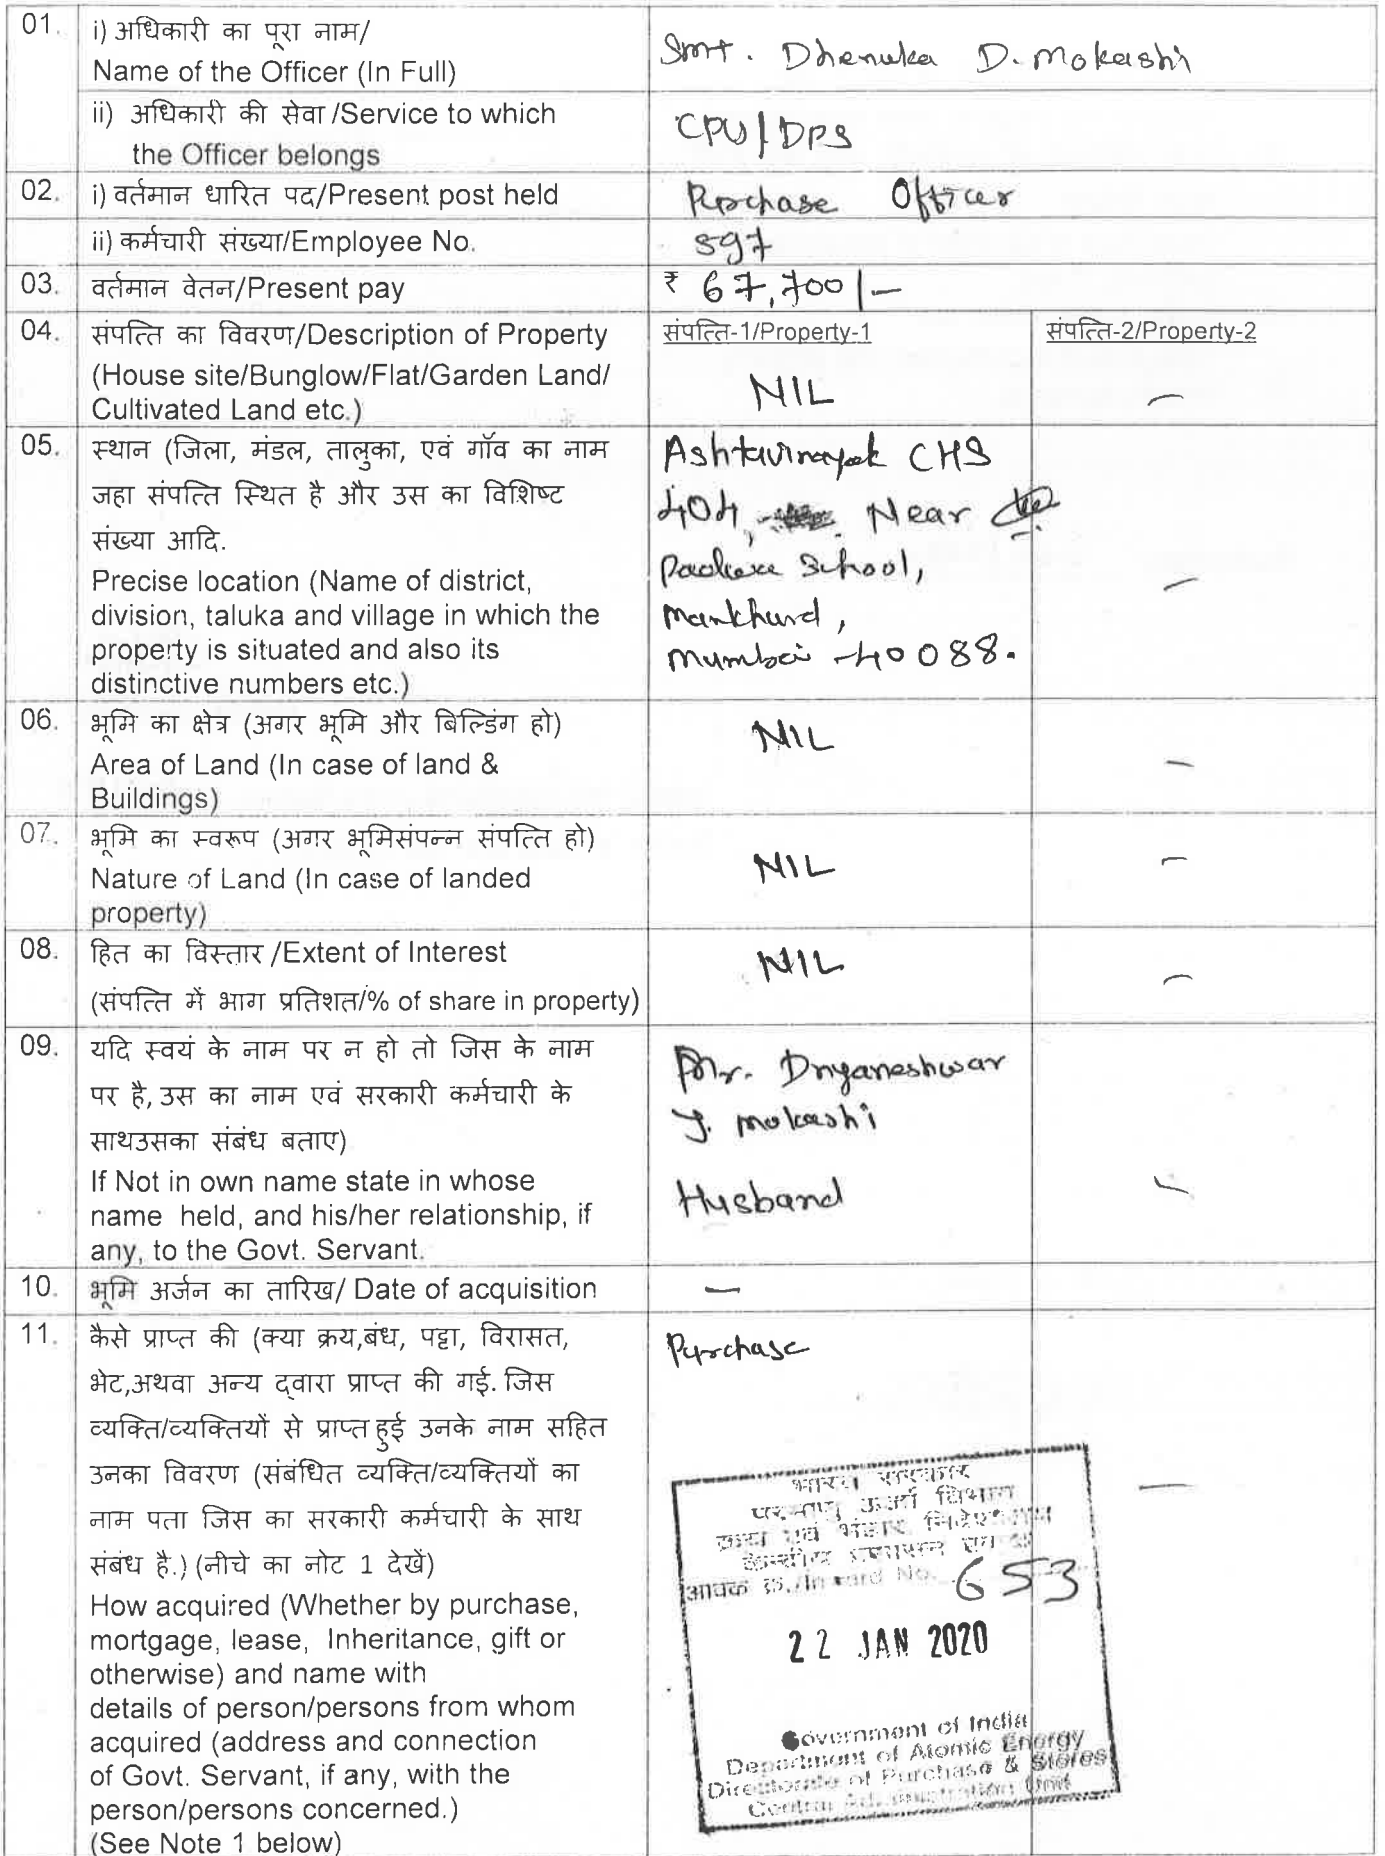 01. i) अधिकारी का पूरा नाम/
Name of the Officer (In Full)
Smt. Dhenuka D. Mokashi
ii) अधिकारी की सेवा /Service to which
the Officer belongs
CPU/DPS
02. i) वर्तमान धारित पद/Present post held
Purchase Officer
ii) कर्मचारी संख्या/Employee No.
597
03. वर्तमान वेतन/Present pay
₹ 67,700/-
04. संपत्ति का विवरण/Description of Property
(House site/Bunglow/Flat/Garden Land/
Cultivated Land etc.)
संपत्ति-1/Property-1
NIL
संपत्ति-2/Property-2
–
05. स्थान (जिला, मंडल, तालुका, एवं गॉव का नाम
जहा संपत्ति स्थित है और उस का विशिष्ट
संख्या आदि.
Precise location (Name of district,
division, taluka and village in which the
property is situated and also its
distinctive numbers etc.)
Ashtavinayak CHS
404, Near
School,
Mankhurd,
Mumbai -40088.
–
06. भूमि का क्षेत्र (अगर भूमि और बिल्डिंग हो)
Area of Land (In case of land &
Buildings)
NIL
–
07. भूमि का स्वरूप (अगर भूमिसंपन्न संपत्ति हो)
Nature of Land (In case of landed
property)
NIL
–
08. हित का विस्तार /Extent of Interest
(संपत्ति में भाग प्रतिशत/% of share in property)
NIL
–
09. यदि स्वयं के नाम पर न हो तो जिस के नाम
पर है, उस का नाम एवं सरकारी कर्मचारी के
साथउसका संबंध बताए)
If Not in own name state in whose
name held, and his/her relationship, if
any, to the Govt. Servant.
Mr. Dnyaneshwar
J. Mokashi
Husband
–
10. भूमि अर्जन का तारिख/ Date of acquisition
–
11. कैसे प्राप्त की (क्या क्रय,बंध, पट्टा, विरासत,
भेट,अथवा अन्य द्वारा प्राप्त की गई. जिस
व्यक्ति/व्यक्तियों से प्राप्त हुई उनके नाम सहित
उनका विवरण (संबंधित व्यक्ति/व्यक्तियों का
नाम पता जिस का सरकारी कर्मचारी के साथ
संबंध है.) (नीचे का नोट 1 देखें)
How acquired (Whether by purchase,
mortgage, lease, Inheritance, gift or
otherwise) and name with
details of person/persons from whom
acquired (address and connection
of Govt. Servant, if any, with the
person/persons concerned.)
(See Note 1 below)
Purchase
–
भारत सरकार
परमाणु ऊर्जा विभाग
क्रय एवं भंडार निदेशालय
आवक क्र./Inward No. 653
22 JAN 2020
Government of India
Department of Atomic Energy
Directorate of Purchase & Stores
Central Administration Unit